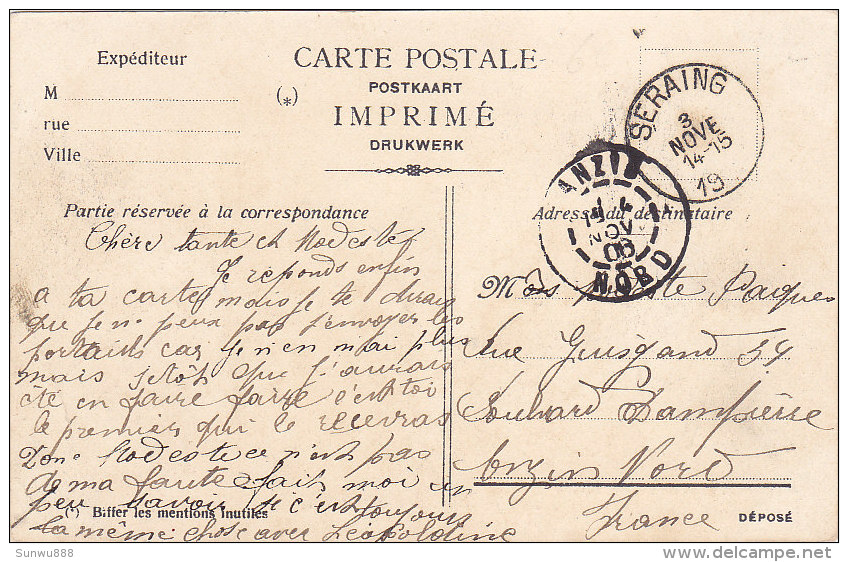 Expéditeur
M
rue
Ville
CARTE POSTALE
POSTKAART
(*) IMPRIMÉ
DRUKWERK
SERAING
3
NOVE
14-15
19
ANZIN
NOV
NORD
Partie réservée à la correspondance
Adresse du destinataire
Chère tante et Modeste
Je reponds enfin
a ta carte mais je te dirai
que je ne peux pas t'envoyer les
portraits car je n'en n'ai plus
mais sitôt que j'aurais
été en faire faire c'est toi
le premier qui le recevras
Donc Modeste ce n'est pas
de ma faute fait moi un
peu savoir si c'est toujours
la même chose avec Léopoldine
Mons Paques
Rue Guisgand 54
Dampierre
Anzin Nord
France
(*) Biffer les mentions inutiles
DÉPOSÉ
Sunwu888
delcampe.net